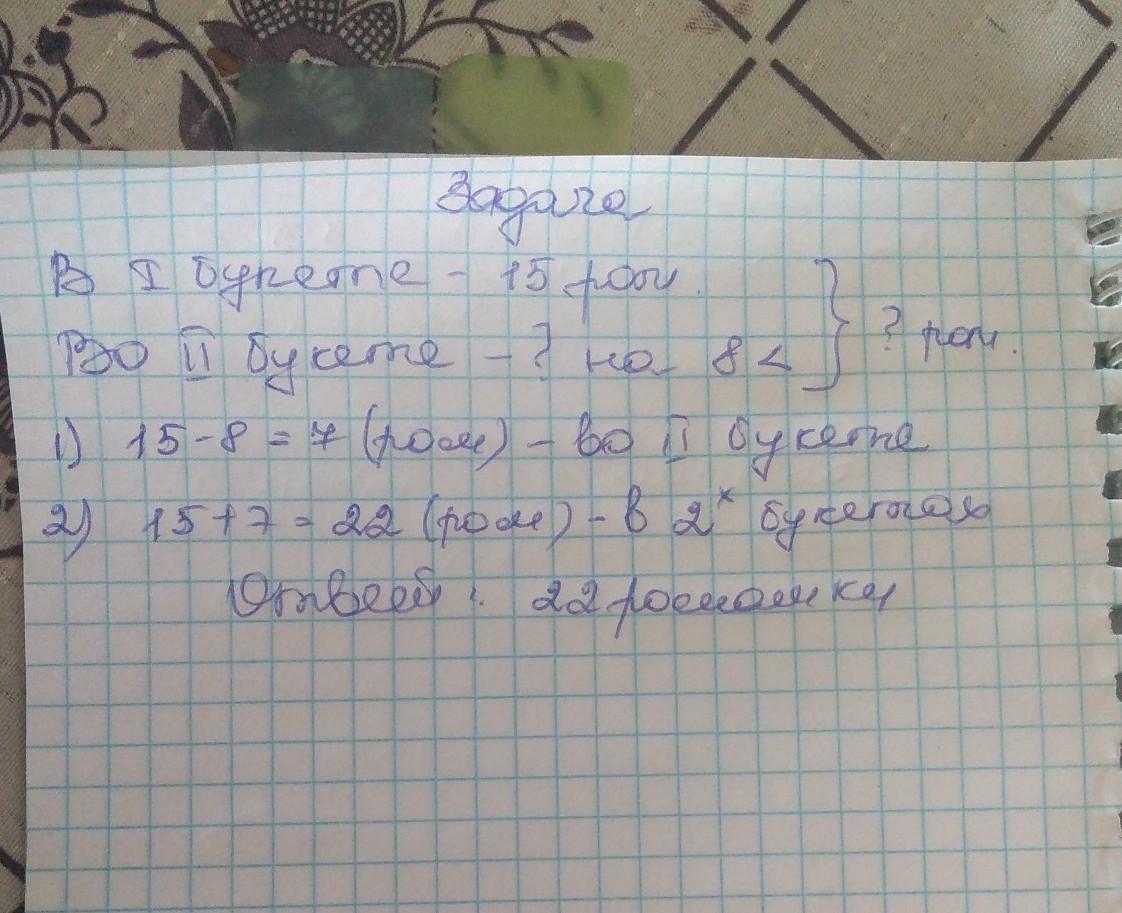 Задача
В I букете - 15 ром.
Во II букете - ? на 8 < } ? ром.
1) 15 - 8 = 7 (ром) - во II букете
2) 15 + 7 = 22 (ром) - в 2х букетах
Ответ: 22 ромашки